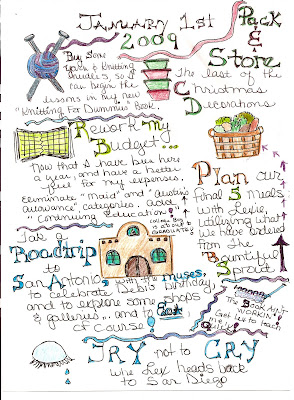 January 1st
2009
Buy Some
yarn & Knitting
Needles, so I
can begin the
lessons in my new
"Knitting For Dummies" Book.
Pack
&
Store
The last of the
Christmas
Decorations
Rework my
Budget...
Now that I have been here
a year, and have a better
feel for my expenses.
Eliminate "Maid" and "Austin's
allowance" categories. add
"Continuing Education"!
college boy
is about to
GRADUATE!
Plan our
final 3 meals
with Lexie,
utilizing what
we have ordered
from the
Bountiful
Sprout
Take a
Roadtrip
to
San Antonio, with the Muses,
to celebrate Debi's birthday
and to explore some shops
& galleries... and to Eat
of course
The Book AIN'T
WORKIN'
Get Lex to teach
me
TRY not to CRY
when Lex heads back
to San Diego